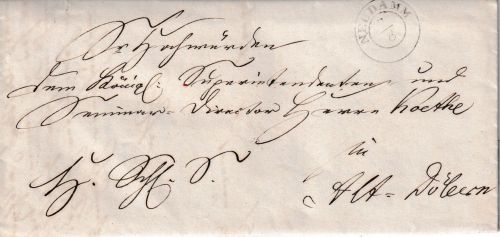 NEUDAMM
Sr Hochwürden
dem Königl: Superintendenten und
Seminar-Director Herrn Koethe
in
H. Schl. S.
Alt-Döbern